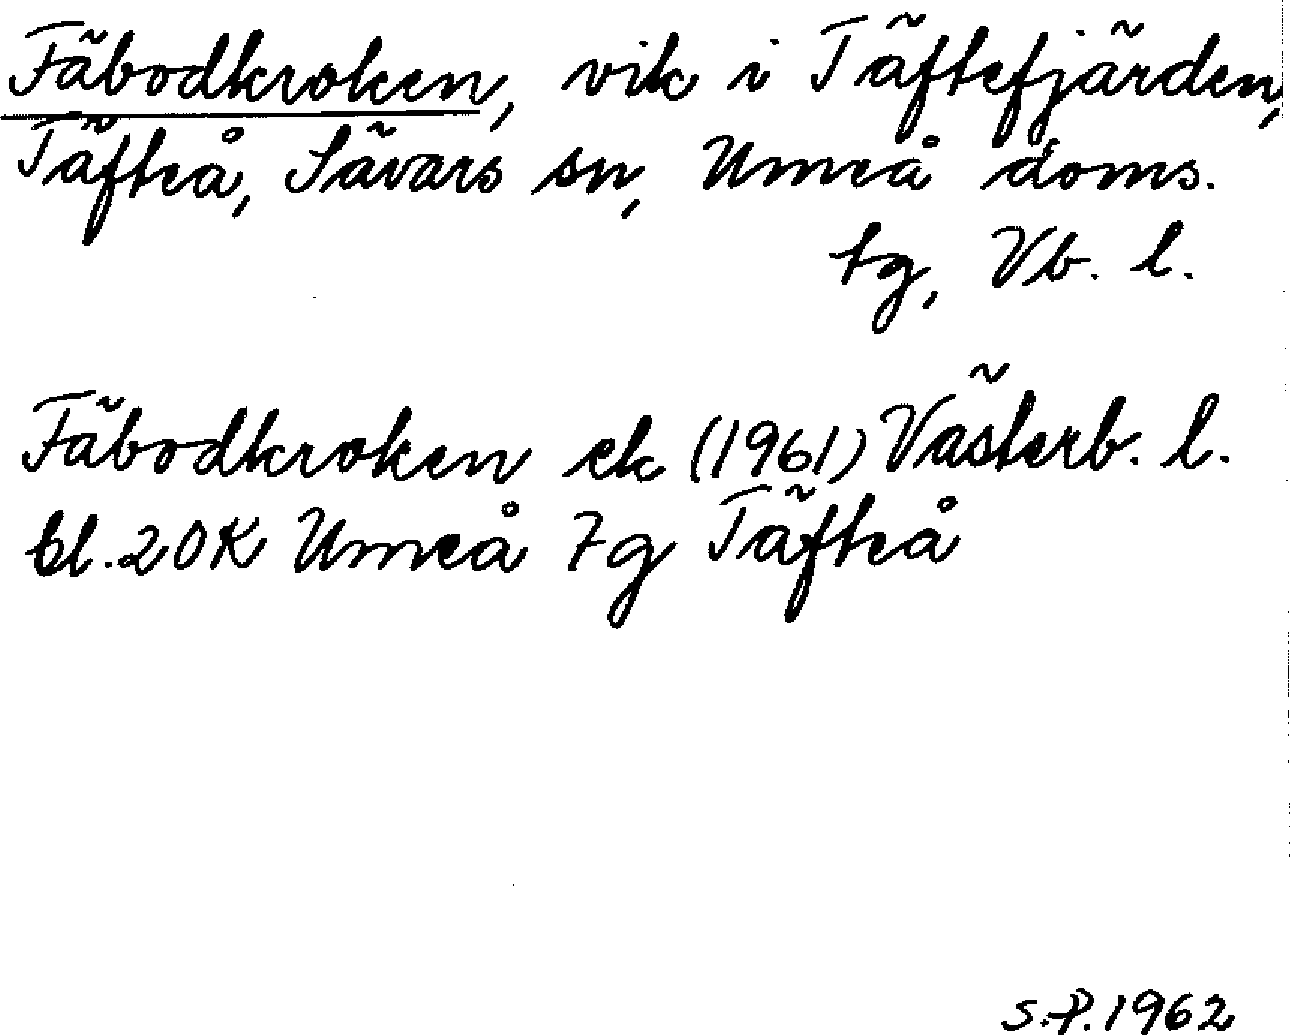 Fäbodkroken, vik i Täftefjärden,
Täfteå, Sävars sn, Umeå doms.
tg, Vb. l.
Fäbodkroken ek (1961) Västerb. l.
bl. 20K Umeå 7g Täfteå
S.P. 1962